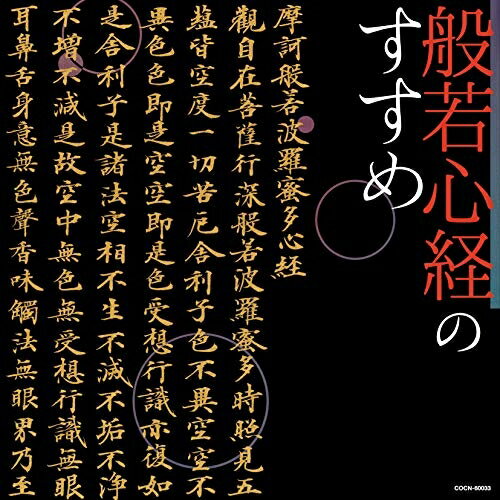 般若心経の
すすめ
摩訶般若波羅蜜多心経
觀自在菩薩行深般若波羅蜜多時照見五
蘊皆空度一切苦厄舎利子色不異空空不
異色色即是空空即是色受想行識亦復如
是舎利子是諸法空相不生不滅不垢不浄
不増不減是故空中無色無受想行識無眼
耳鼻舌身意無色聲香味觸法無眼界乃至
COCN-60033